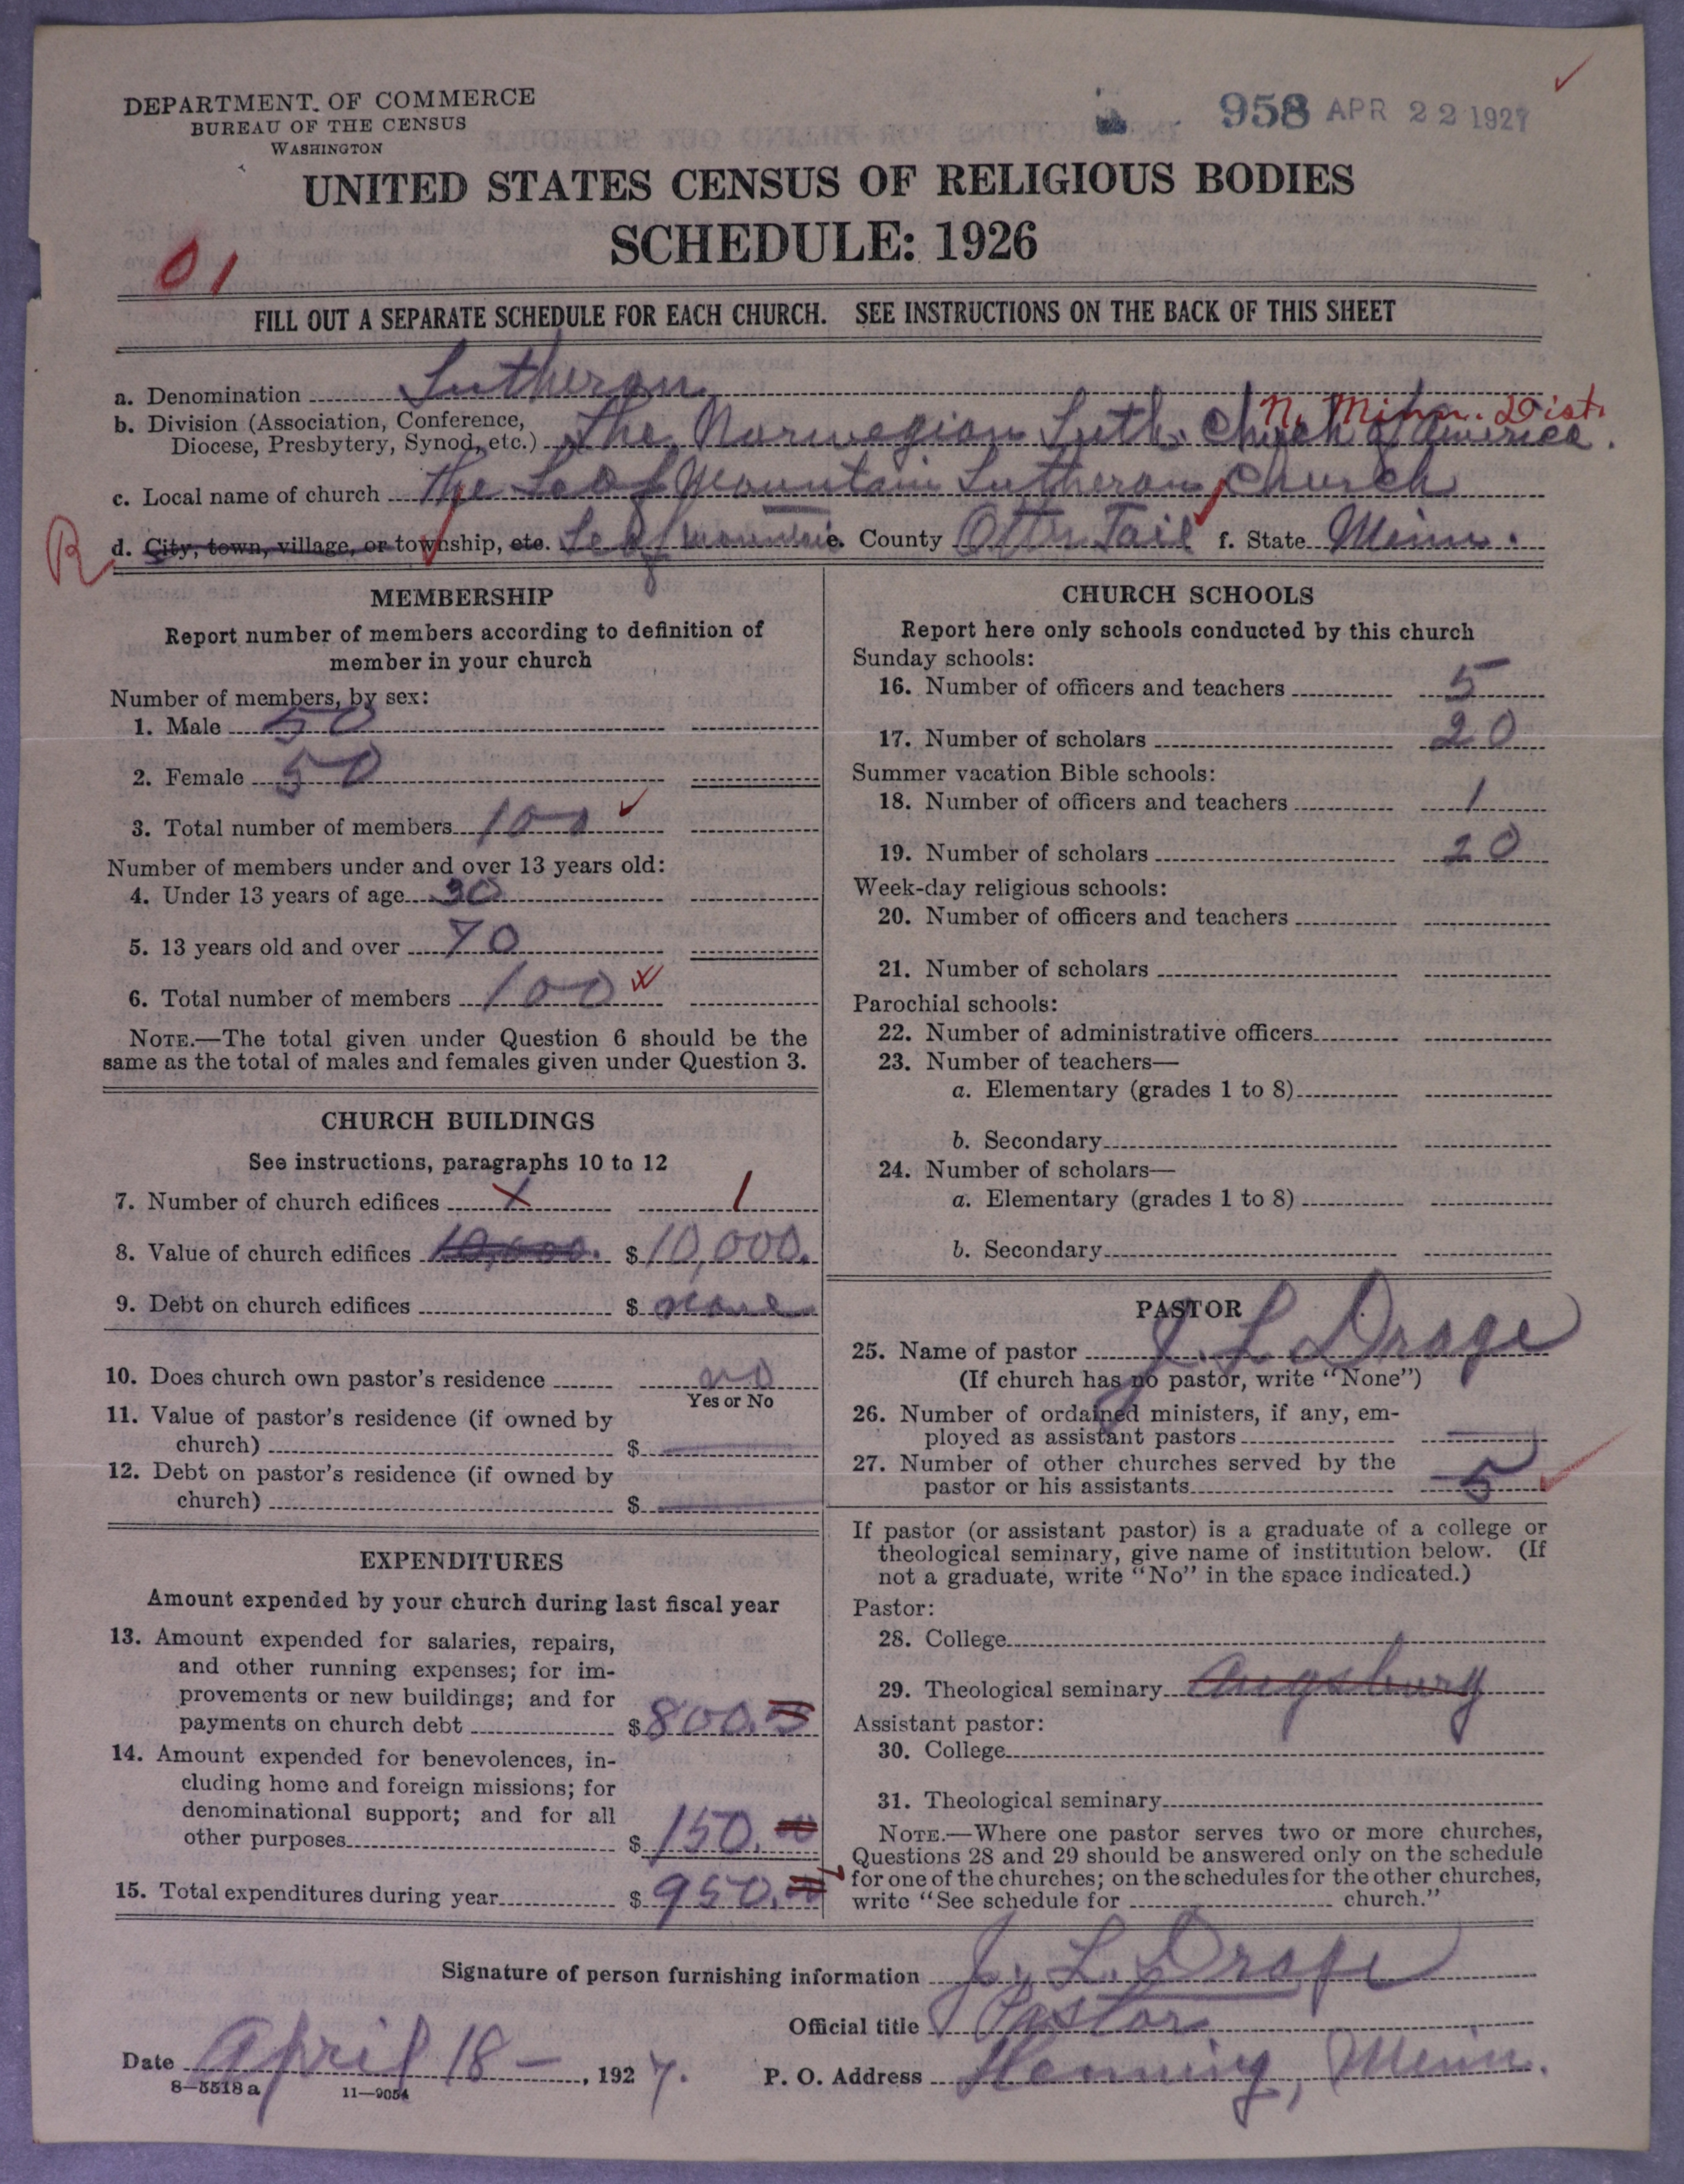 DEPARTMENT OF COMMERCE
BUREAU OF THE CENSUS
WASHINGTON
958 APR 22 1927
UNITED STATES CENSUS OF RELIGIOUS BODIES
SCHEDULE: 1926
01
FILL OUT A SEPARATE SCHEDULE FOR EACH CHURCH. SEE INSTRUCTIONS ON THE BACK OF THIS SHEET
a. Denomination Lutheran
N. Minn. Dist.
b. Division (Association, Conference,
Diocese, Presbytery, Synod, etc.) The Norwegian Luth. Church of America.
c. Local name of church The Leaf Mountain Lutheran Church
R d. City, town, village, or township, etc. Leaf Mountain e. County Otter Tail f. State Minn.
MEMBERSHIP
Report number of members according to definition of
member in your church
Number of members, by sex:
1. Male 50
2. Female 50
3. Total number of members 100
Number of members under and over 13 years old:
4. Under 13 years of age 30
5. 13 years old and over 70
6. Total number of members 100
NOTE.—The total given under Question 6 should be the
same as the total of males and females given under Question 3.
CHURCH BUILDINGS
See instructions, paragraphs 10 to 12
7. Number of church edifices 1
8. Value of church edifices 10,000. $ 10,000.
9. Debt on church edifices $ none
10. Does church own pastor's residence no
Yes or No
11. Value of pastor's residence (if owned by
church) $
12. Debt on pastor's residence (if owned by
church) $
EXPENDITURES
Amount expended by your church during last fiscal year
13. Amount expended for salaries, repairs,
and other running expenses; for im-
provements or new buildings; and for
payments on church debt $ 800.
14. Amount expended for benevolences, in-
cluding home and foreign missions; for
denominational support; and for all
other purposes $ 150.00
15. Total expenditures during year $ 950.00
CHURCH SCHOOLS
Report here only schools conducted by this church
Sunday schools:
16. Number of officers and teachers 5
17. Number of scholars 20
Summer vacation Bible schools:
18. Number of officers and teachers 1
19. Number of scholars 20
Week-day religious schools:
20. Number of officers and teachers
21. Number of scholars
Parochial schools:
22. Number of administrative officers
23. Number of teachers—
a. Elementary (grades 1 to 8)
b. Secondary
24. Number of scholars—
a. Elementary (grades 1 to 8)
b. Secondary
PASTOR
25. Name of pastor J. L. Drage
(If church has no pastor, write "None")
26. Number of ordained ministers, if any, em-
ployed as assistant pastors
27. Number of other churches served by the
pastor or his assistants 5
If pastor (or assistant pastor) is a graduate of a college or
theological seminary, give name of institution below. (If
not a graduate, write "No" in the space indicated.)
Pastor:
28. College
29. Theological seminary Augsburg
Assistant pastor:
30. College
31. Theological seminary
NOTE.—Where one pastor serves two or more churches,
Questions 28 and 29 should be answered only on the schedule
for one of the churches; on the schedules for the other churches,
write "See schedule for church."
Signature of person furnishing information J. L. Drage
Official title Pastor
Date April 18 – , 1927. P. O. Address Henning, Minn.
8—5518 a 11—9054